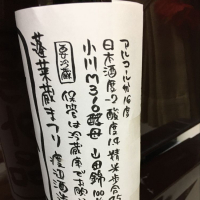 アルコール分16度
日本酒度-7 酸度1.4 精米歩合75
小川M310酵母 山田錦100
要冷蔵 保管は冷蔵庫でお願
蓬莱蔵まつり 渡辺酒造